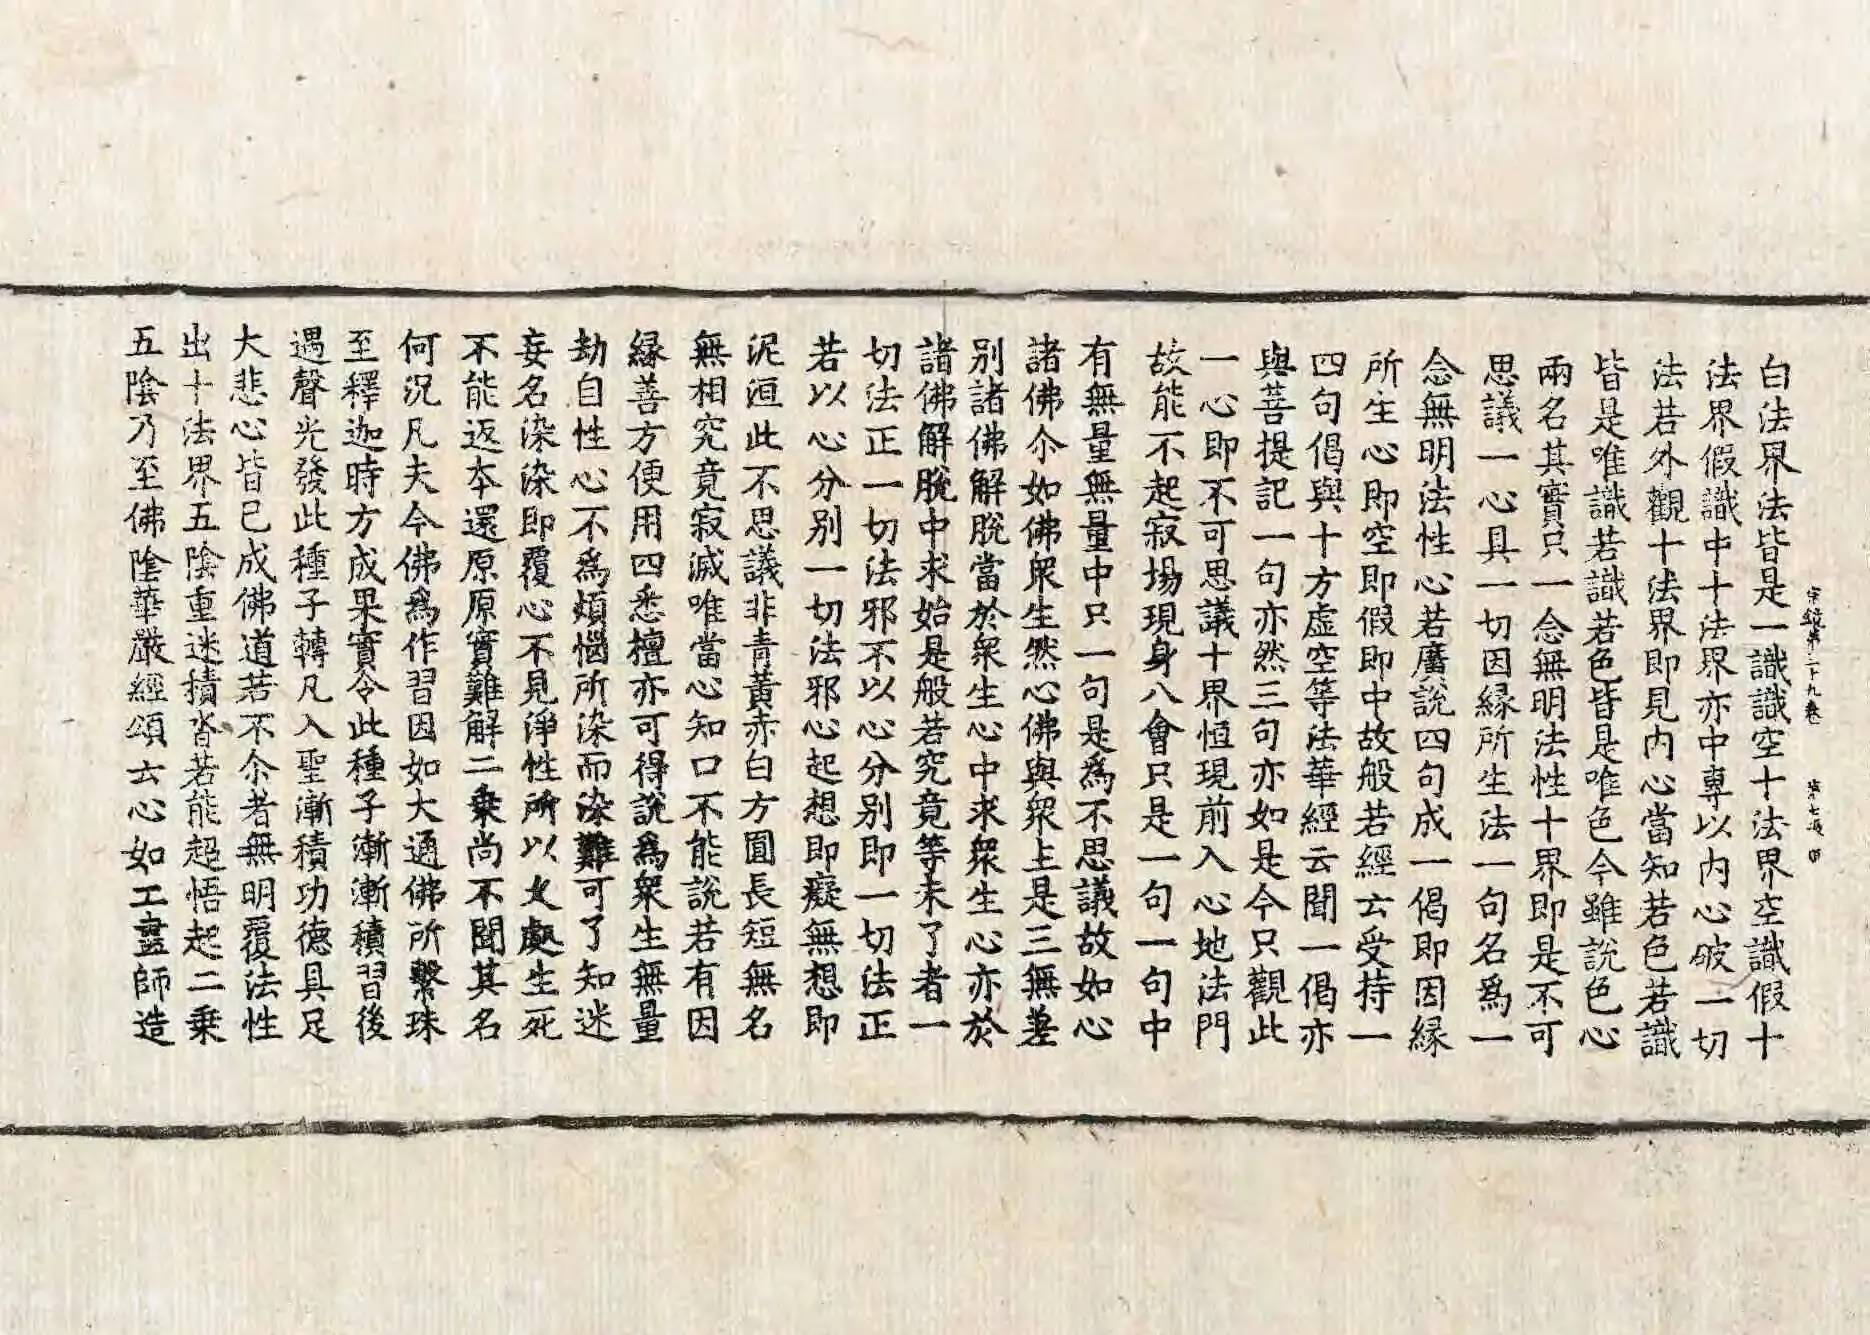 宗鏡第二十九卷 第七張 甲
白法界法皆是一識識空十法界空識假十
法界假識中十法界亦中專以內心破一切
法若外觀十法界即見內心當知若色若識
皆是唯識若識若色皆是唯色今雖說色心
兩名其實只一念無明法性十界即是不可
思議一心具一切因緣所生法一句名為一
念無明法性心若廣說四句成一偈即因緣
所生心即空即假即中故般若經云受持一
四句偈與十方虛空等法華經云聞一偈亦
與菩提記一句亦然三句亦如是今只觀此
一心即不可思議十界恒現前入心地法門
故能不起寂場現身八會只是一句一句中
有無量無量中只一句是為不思議故如心
諸佛尒如佛衆生然心佛與衆生是三無差
別諸佛解脫當於衆生心中求衆生心亦於
諸佛解脫中求始是般若究竟等未了者一
切法正一切法邪不以心分別即一切法正
若以心分別一切法邪心起想即癡無想即
泥洹此不思議非青黃赤白方圓長短無名
無相究竟寂滅唯當心知口不能說若有因
緣善方便用四悉檀亦可得說為衆生無量
劫自性心不為煩惱所染而染難可了知迷
妄名染染即覆心不見淨性所以久處生死
不能返本還原原實難解二乗尚不聞其名
何況凡夫今佛為作習因如大通佛所繫珠
至釋迦時方成果實令此種子漸漸積習後
遇聲光發此種子轉凡入聖漸積功德具足
大悲心皆已成佛道若不尒者無明覆法性
出十法界五陰重迷積沓若能超悟起二乗
五陰乃至佛陰華嚴經頌云心如工畫師造